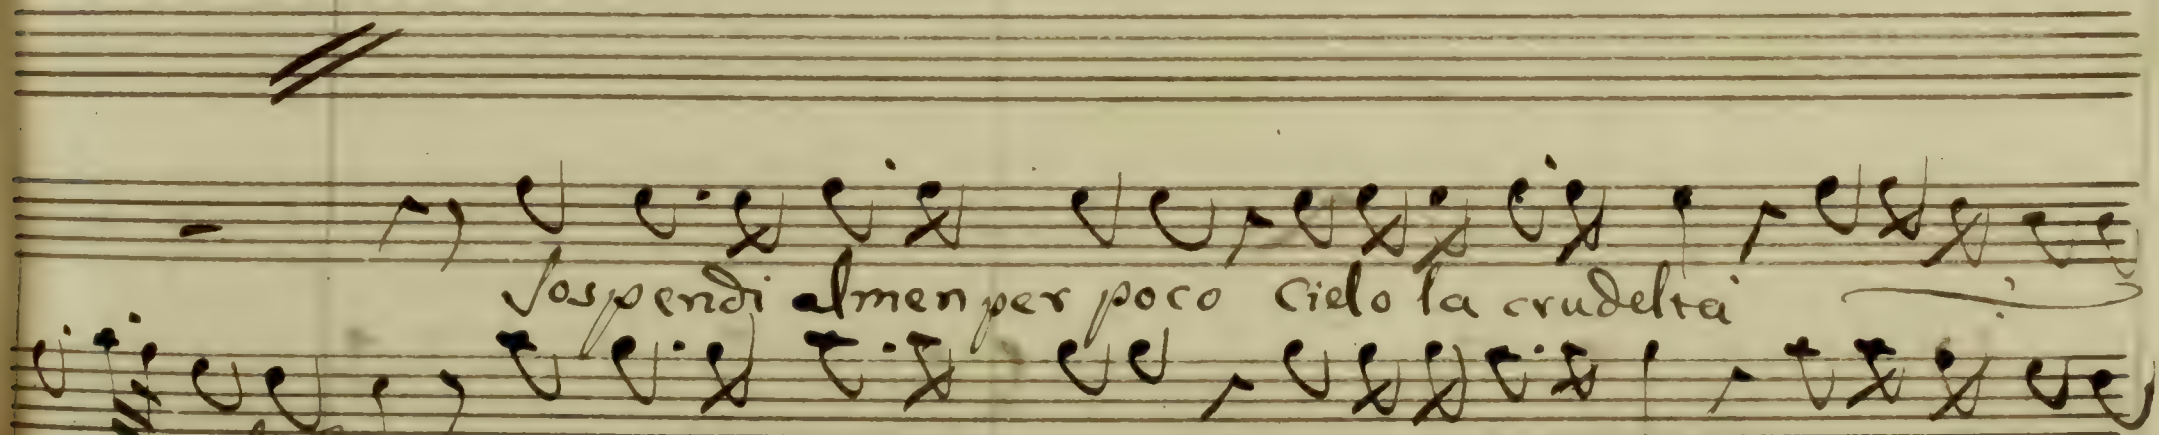 Sospendi almen per poco Cielo la crudeltà